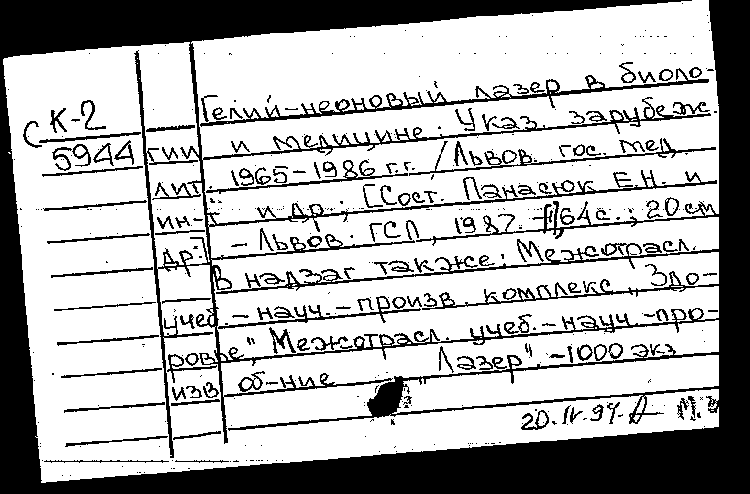 К-2
5944
Гелий-неоновый лазер в биоло-
гии и медицине: Указ. зарубеж.
лит. 1965-1986 г.г. / Львов. гос. мед.
ин-т и др.; [Сост. Панасюк Е.Н. и
др.]. - Львов: ГСП, 1987. - 164 с.; 20 см
В надзаг также: Межотрасл.
учеб.-науч.-произв. комплекс "Здо-
ровье", Межотрасл. учеб.-науч.-про-
изв об-ние "Лазер". ~1000 экз
20.IV.94.